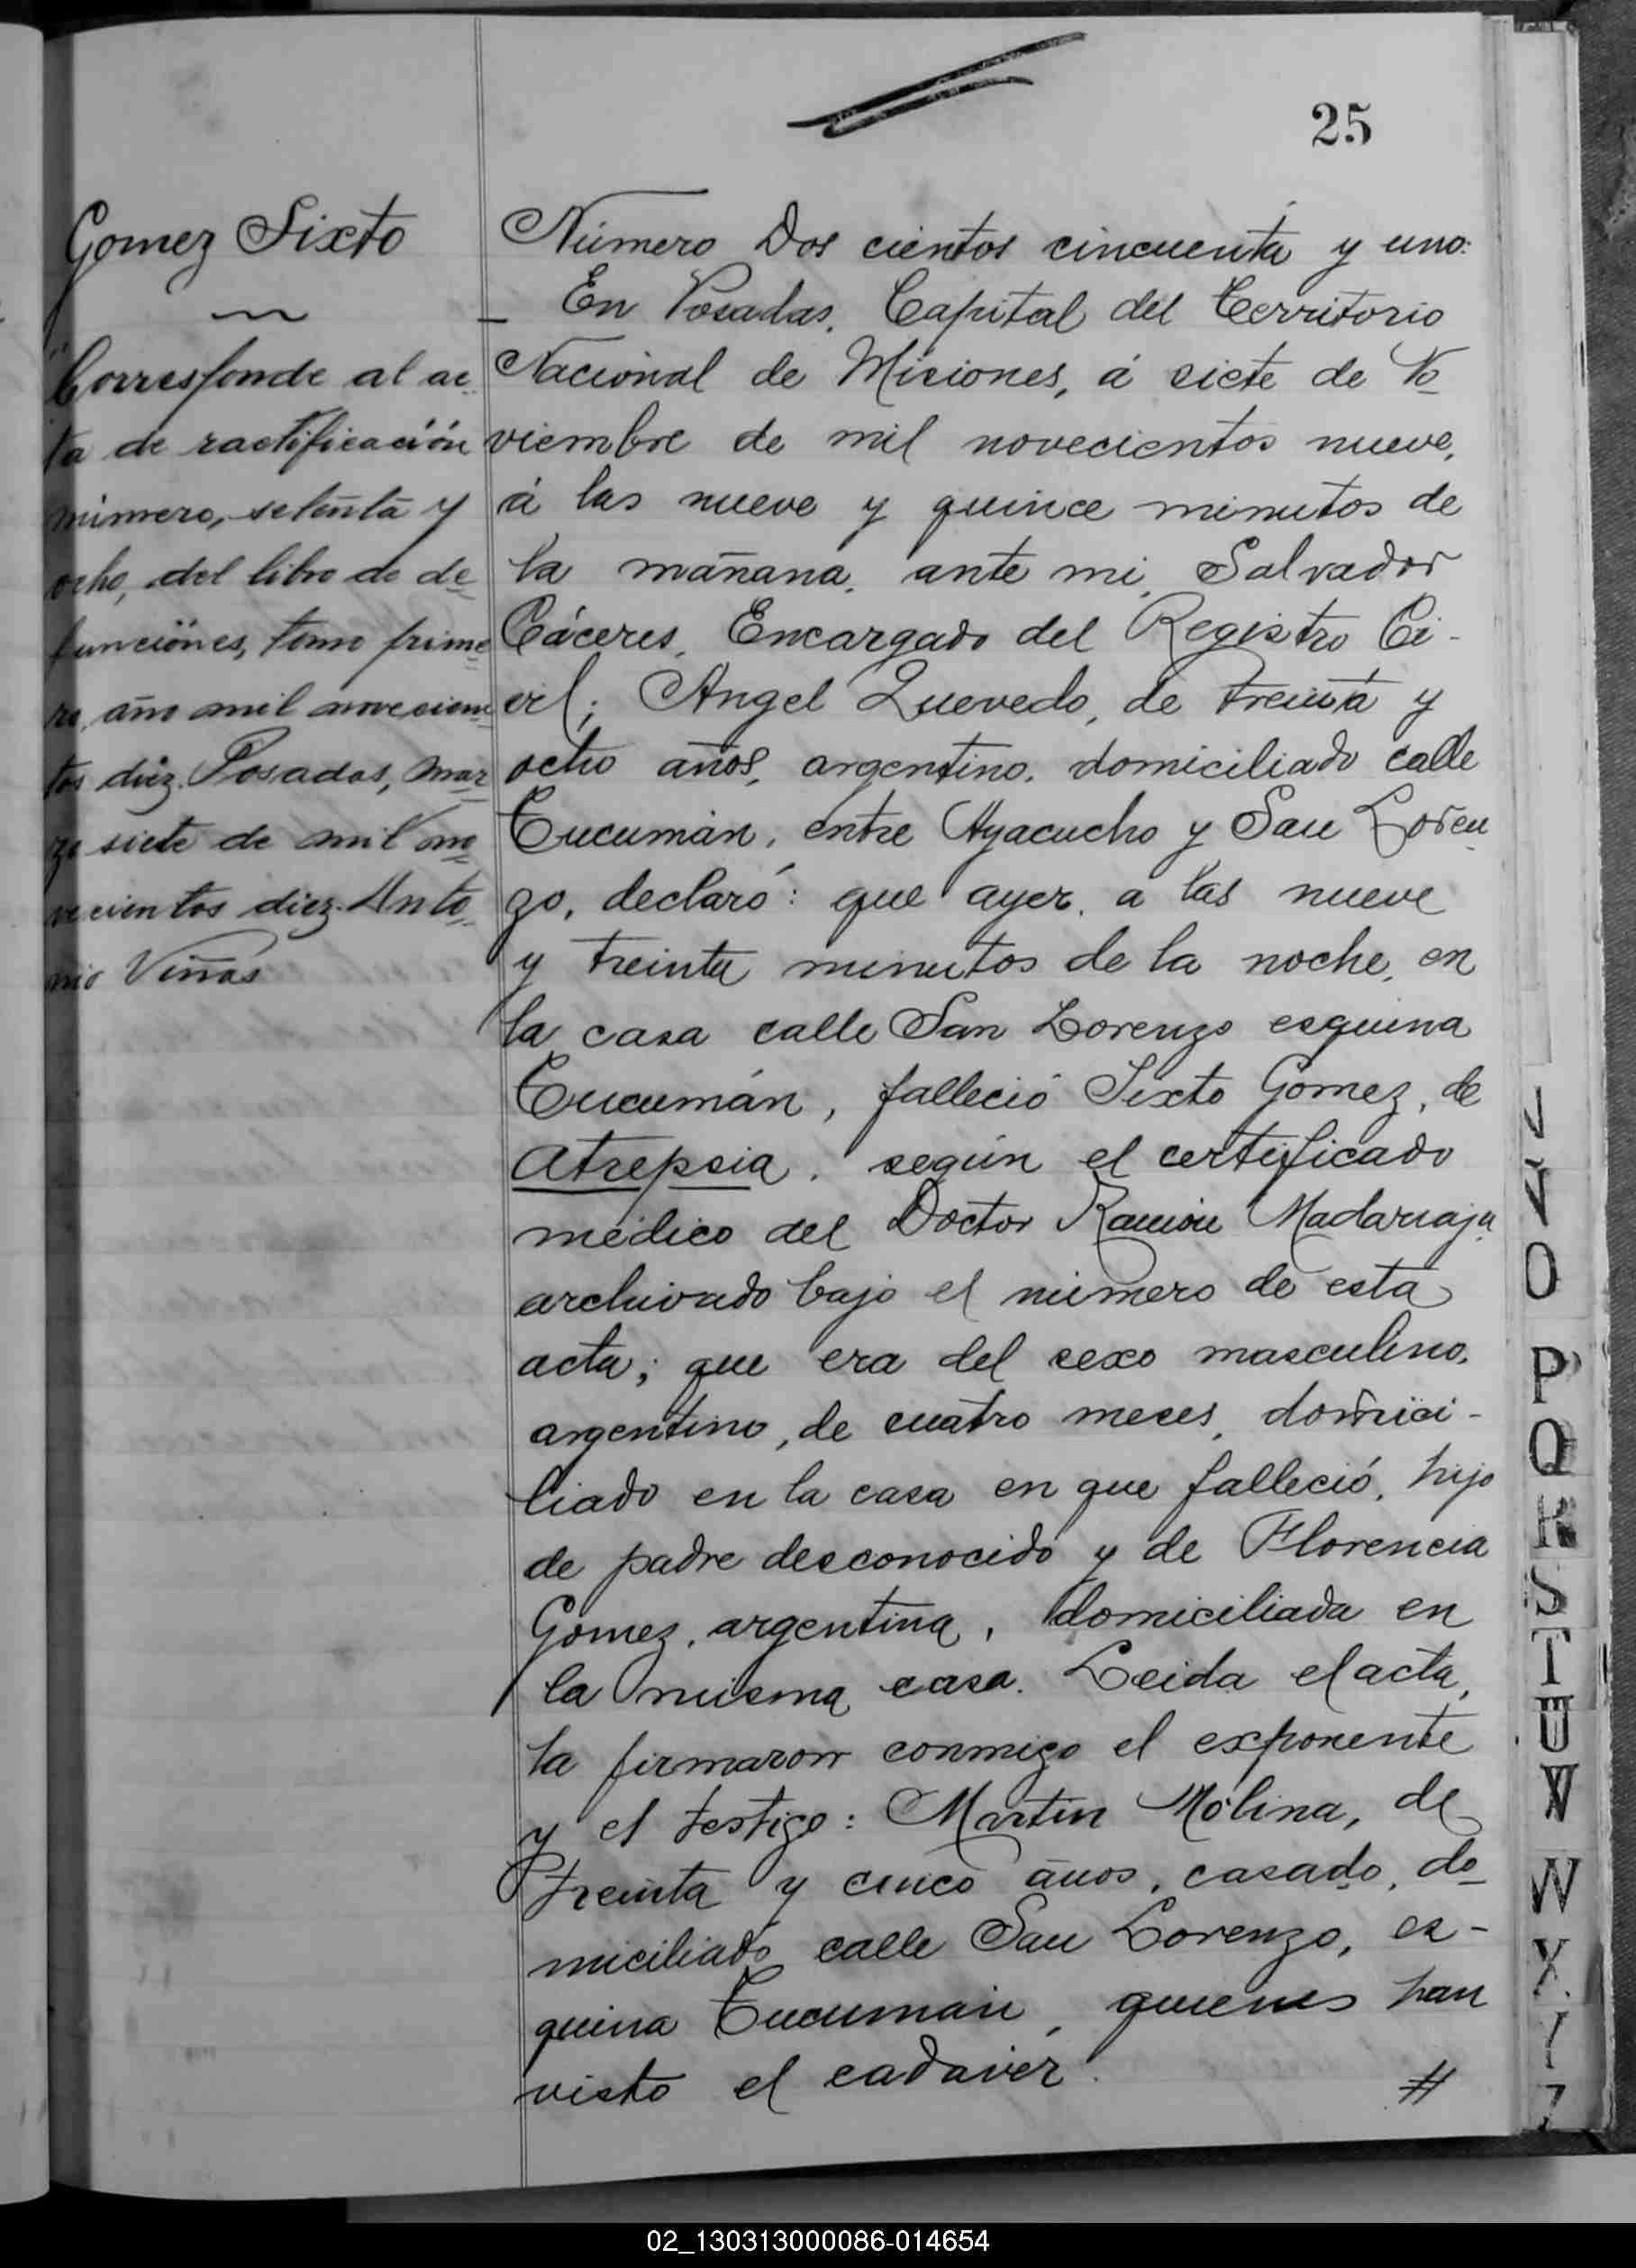 25
Gomez Sixto
Corresponde al ac
ta de ractificación
número, setenta y
ocho, del libro de de
funciónes, tomo prime
ro, año mil novecien
tos diez. Posadas, mar
zo siete de mil no
vecientos diez. Anto
nio Viñas
Número Dos cientos cincuenta y uno.
En Posadas, Capital del Territorio
Nacional de Misiones, á siete de No
viembre de mil novecientos nueve,
á las nueve y quince minutos de
la mañana, ante mi, Salvador
Cáceres, Encargado del Registro Ci-
vil; Angel Quevedo, de treinta y
ocho años, argentino, domiciliado calle
Tucumán, entre Ayacucho y San Loren
zo, declaró: que ayer, a las nueve
y treinta minutos de la noche, en
la casa calle San Lorenzo esquina
Tucumán, falleció Sixto Gomez, de
Atrepsia, según el certificado
médico del Doctor Ramón Madariaga
archivado bajo el número de esta
acta; que era del sexo masculino,
argentino, de cuatro meses, domici-
liado en la casa en que falleció, hijo
de padre desconocido y de Florencia
Gomez, argentina, domiciliada en
la misma casa. Leida el acta,
la firmaron conmigo el exponente
y el testigo: Martin Molina, de
treinta y cinco años, casado, do
miciliado calle San Lorenzo, es-
quina Tucumán, quienes han
visto el cadáver. #
O
P
Q
R
S
T
U
V
W
X
02_130313000086-014654